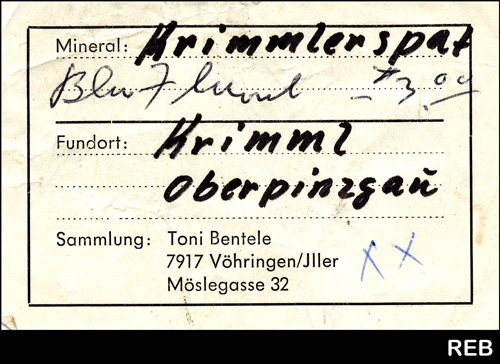 Mineral: Krimmlerspat
Blu Fluor $3.00
Fundort: Krimml
Oberpinzgau
Sammlung: Toni Bentele
7917 Vöhringen/Jller
Möslegasse 32
XX
REB